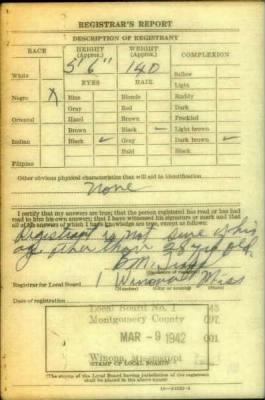 REGISTRAR'S REPORT
DESCRIPTION OF REGISTRANT
RACE HEIGHT (Approx.) WEIGHT (Approx.) COMPLEXION
5'6" 140
White EYES HAIR Sallow
Light
Negro X Blue Blonde Ruddy
Gray Red Dark
Oriental Hazel Brown Freckled
Brown Black ✓ Light brown
Indian Black ✓ Gray Dark brown ✓
Bald Black
Filipino
Other obvious physical characteristics that will aid in identification
None
I certify that my answers are true; that the person registered has read or has had
read to him his own answers; that I have witnessed his signature or mark and that
all of his answers of which I have knowledge are true, except as follows:
Registrant is not sure of his
age other than 28 yrs old.
B.M.
Registrar for Local Board 1 Winona Miss
(Number) (City or county)
Date of registration
Local Board No. 1 45
Montgomery County 097
MAR - 9 1942 001
Winona, Mississippi
(STAMP OF LOCAL BOARD)
(The stamp of the Local Board having jurisdiction of the registrant
shall be placed in the above space.)